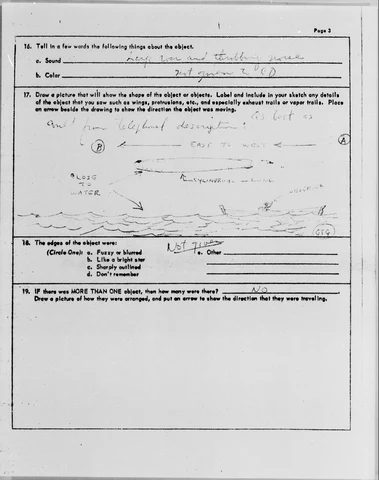 Page 3
16. Tell in a few words the following things about the object.
a. Sound and throbbing noise
b. Color not given
17. Draw a picture that will show the shape of the object or objects. Label and include in your sketch any details
of the object that you saw such as wings, protrusions, etc., and especially exhaust trails or vapor trails. Place
an arrow beside the drawing to show the direction the object was moving.
as best as
from telephone description:
B EAST TO WEST A
CLOSE
TO
WATER
18. The edges of the object were:
(Circle One): a. Fuzzy or blurred e. Other Not given
b. Like a bright star
c. Sharply outlined
d. Don't remember
19. IF there was MORE THAN ONE object, then how many were there? NO
Draw a picture of how they were arranged, and put an arrow to show the direction that they were traveling.